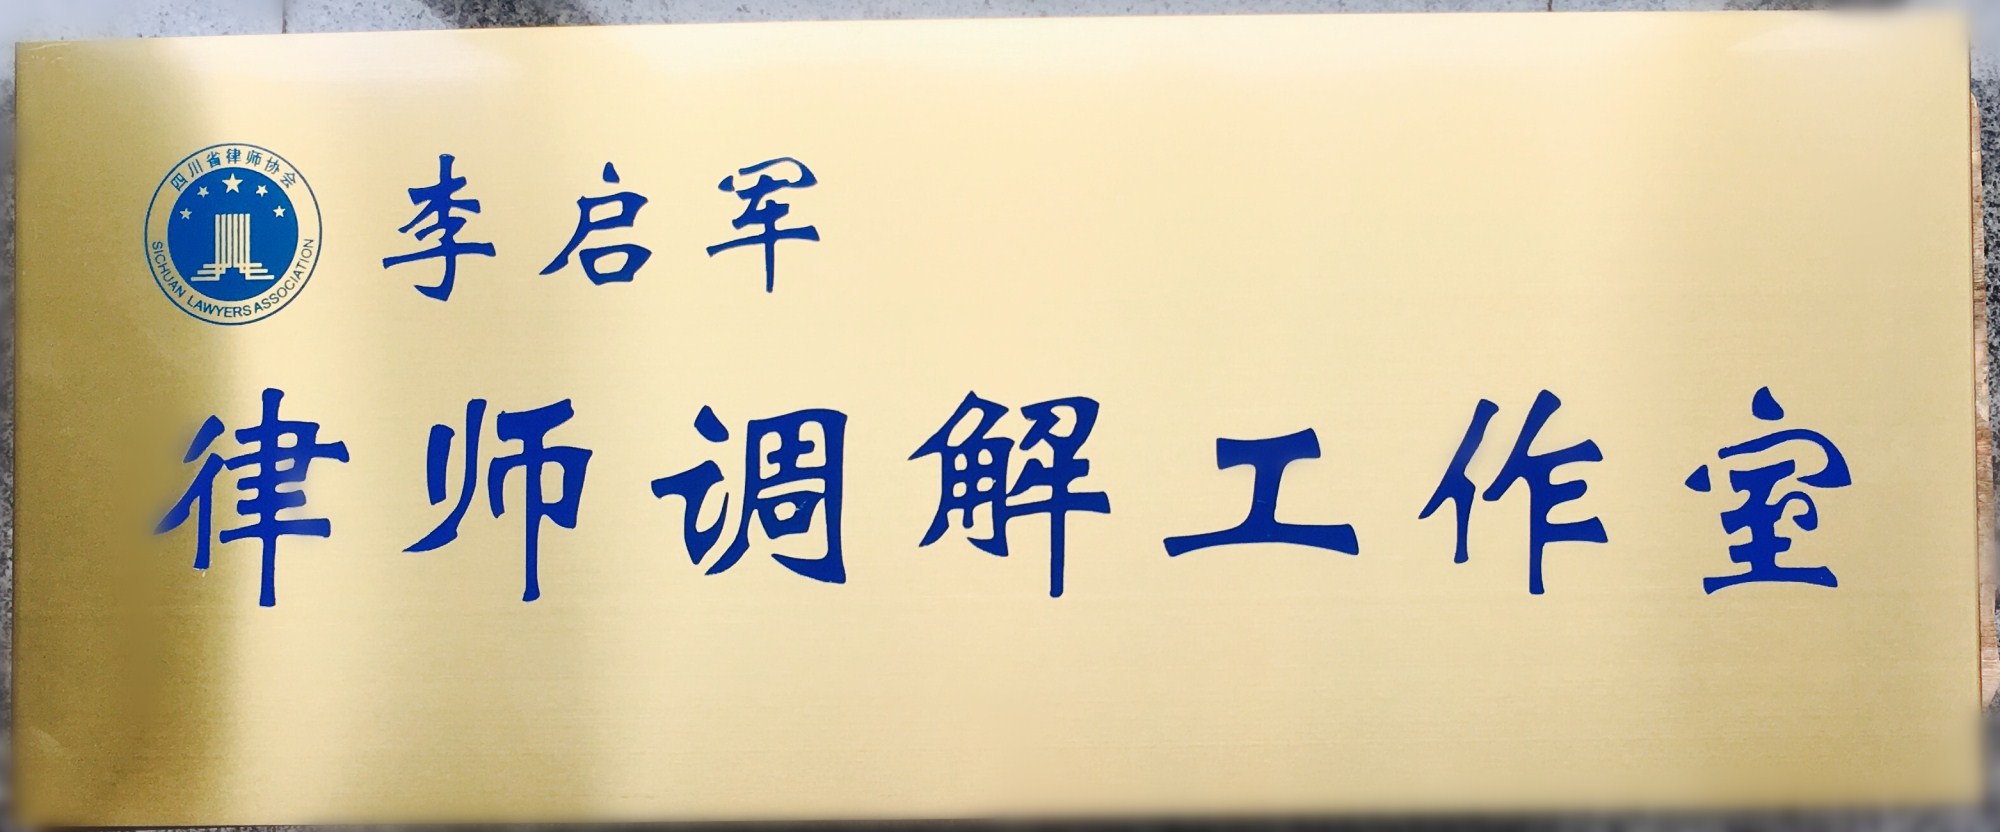 四川省律师协会
SICHUAN LAWYERS ASSOCIATION
李启军
律师调解工作室